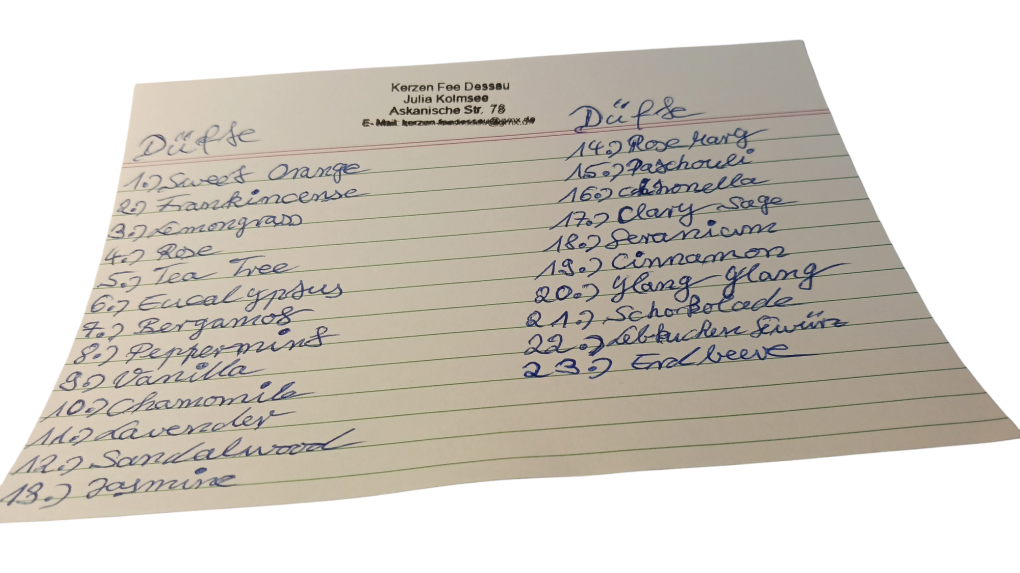 Kerzen Fee Dessau
Julia Kolmsee
Askanische Str. 78
E- Mail: kerzen-feedessau@gmx.de
Düfte
1.) Sweet Orange
2.) Frankincense
3.) Lemongrass
4.) Rose
5.) Tea Tree
6.) Eucalyptus
7.) Bergamot
8.) Peppermint
9.) Vanilla
10.) Chamomile
11.) Lavender
12.) Sandalwood
13.) Jasmine
Düfte
14.) Rosemary
15.) Patchouli
16.) citronella
17.) Clary Sage
18.) Geranium
19.) Cinnamon
20.) Ylang Ylang
21.) Schokolade
22.) Lebkuchen Gewürz
23.) Erdbeere